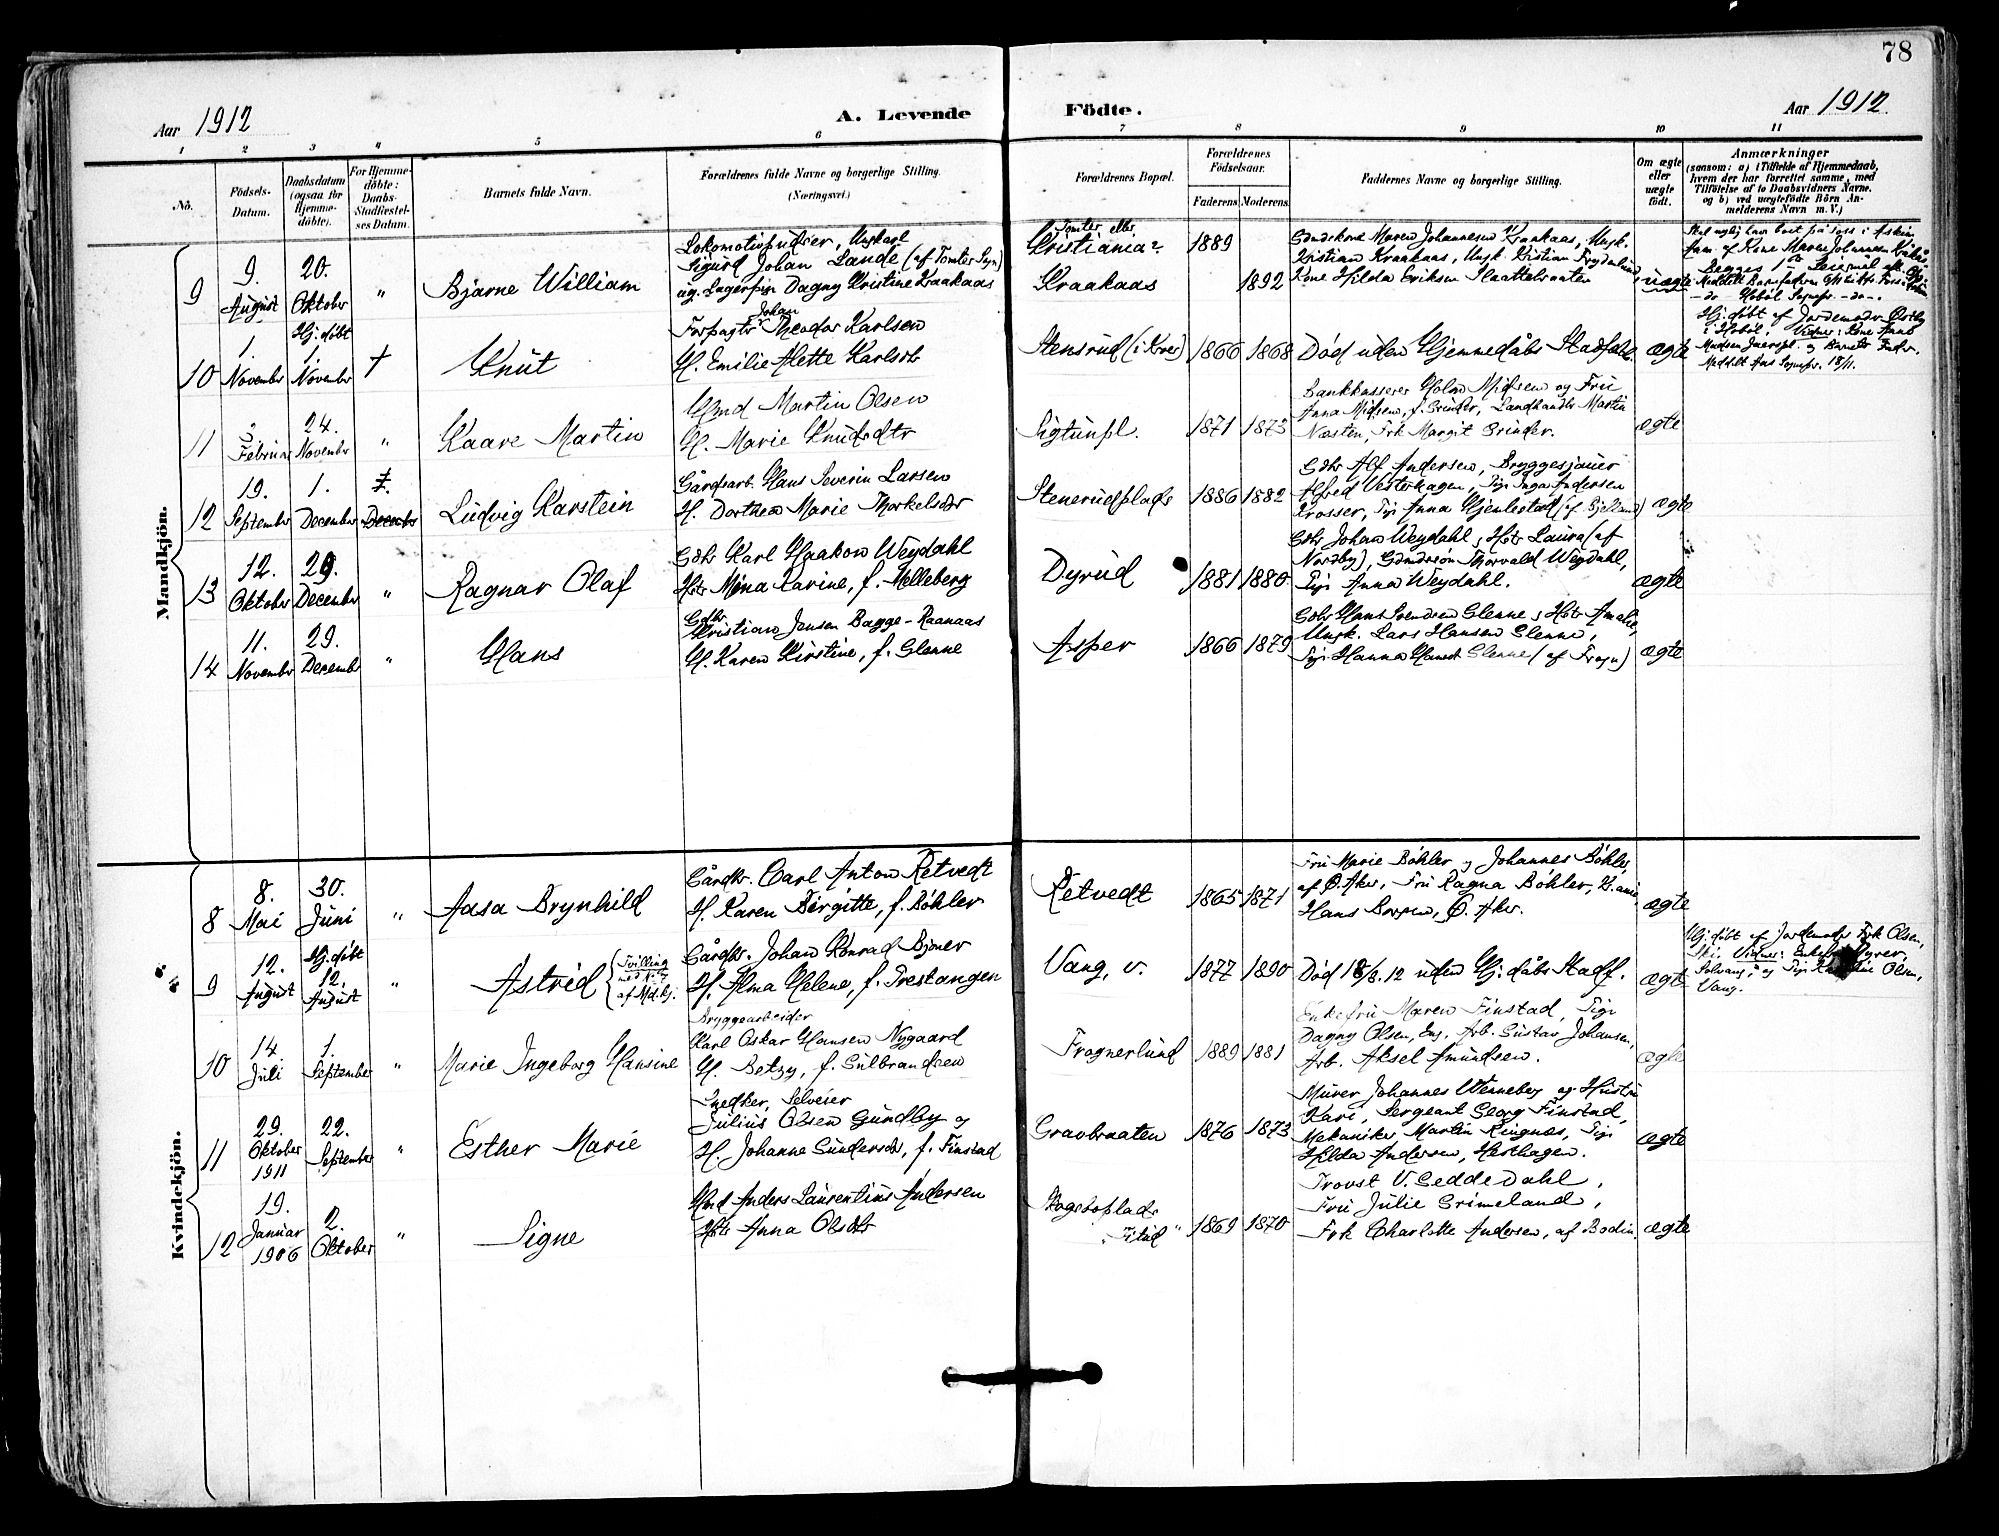 78
Aar 1912
A. Levende Födte.
Aar 1912
1 2 3 4 5 6 7 8 9 10 11
No.
Födsels-Datum.
Daabsdatum (ogsaa for Hjemmedöbte).
For Hjemmedöbte: Daabs-Stadfæstelses Datum.
Barnets fulde Navn.
Forældrenes fulde Navne og borgerlige Stilling.
(Næringsvei.)
Forældrenes Bopæl.
Forældrenes Födselsaar.
Faderens Moderens
Faddernes Navne og borgerlige Stilling.
Om ægte eller uægte födt.
Anmærkninger
(saasom: a) i Tilfælde af Hjemmedaab, hvem der har forrettet samme, med Tilföielse af to Daabsvidners Navne. og b) ved uægtefödte Börn Anmelderens Navn m. V.)
Mandkjön.
9
9. August
20. Oktober
"
Bjarne William
Lokomotivpudser, Ungkarl
Sigurd Johan Lande (af Tomter Sogn)
ug. Dagny Kristine Kraakaas
Tomter eller
Kristiania?
Kraakaas
1889
1892
Gdmdskone Maren Johannesen Kraakaas, Ungk.
Kristian Kraakaas, Ungk. Kristian
Kone Hilda Eriksen Slaattebraaten
uægte
10
1. November
Hj. døbt
1. November
†
Knut
Forpagter Johan Theodor Karlsen
H. Emilie Alette Karlsdtr
Stensrud (i Kr)
1866 1868
Død uden Hjemmedåbs Stadfæst.
ægte
Hj. døbt af Jordemoder Østby
i Hobøl. Vidner: Kone Anna
11
2. Februar
24. November
"
Kaare Martin
Hmd Martin Olsen
H. Marie Knudsdtr
Sigtunpl.
1871 1873
Bankkasserer Holm Midsen og Fru
Anna Midsen, f. Grinder, Landhandler Martin
Næsten, Frk Margit Grinder.
ægte
12
19. September
1. December
December
Ludvig Karstein
Gårdsarb. Hans Severin Larsen
H. Dorthea Marie Thorkelsdtr
Stenerudplads
1886 1882
Gdbr Alf Andersen, Bryggesjauer
Alfred Vesterhagen, Pige Inga Andersen
Krosser, Pige Anna Hjenlestad (af Gjelland)
ægte
13
12. Oktober
29. December
"
Ragnar Olaf
Gdbr Karl Haakon Weydahl
Hstr Mina Karine, f. Melleberg
Dyrud
1881 1880
Gdbr Johan Weydahl, Hstr Laura (af
Nordby), Gdmdssøn Thorvald Weydahl,
Pige Anna Weydahl.
ægte
14
11. November
29. December
"
Hans
Gdbr
Kristian Jensen Bagge-Raanaas
H. Karen Kirstine, f. Glenne
Asper
1866 1879
Gdbr Hans Svendsen Glenne, Hstr Amalie,
Ungk. Lars Hansen Glenne,
Pige Hanna Hansd Glenne (af Frogn)
ægte
Kvindekjön.
8
8. Mai
30. Juni
"
Aasa Brynhild
Gårdbr. Carl Anton Retvedt
H. Karen Birgitte, f. Bøhler
Retvedt
1865 1871
Fru Marie Bøhler og Johannes Bøhler,
af Ø. Aker, Fru Ragna Bøhler,
Hans Ø. Aker.
ægte
9
12. August
Hj. døbt
12. August
"
Astrid
Tvilling med No 7 af Md.kj.
Gårdbr. Johan Konrad Bjoner
H. Alma Helene, f. Prestangen
Vang, v.
1877 1890
Død 18/8.12 uden Hj. dåbs Stadf.
ægte
Hj. døbt af Jordemoder Frk Olsen,
Ski. Vidner: Enkefru Dyrer,
Solvang, og Pige Olsen,
Vang.
10
14 Juli
1. September
"
Marie Ingeborg Hansine
Bryggearbeider
Karl Oskar Hansen Nygaard
H. Betzy, f. Gulbrandsen
Frognerlund
1889 1881
Enkefru Maren Finstad, Pige
Dagny Olsen, Eng, Arb. Gustav Johansen,
Arb. Aksel Amundsen.
ægte
11
29. Oktober 1911
22. September
"
Esther Marie
Snedker, Selveier
Julius Olsen Gundby og
H. Johanne Gundersdtr, f. Finstad
Gravbraaten
1876 1873
Murer Johannes Wenneberg og Hustru
Kari, Sergeant Georg Finstad,
Mekaniker Martin Ringnæs, Pige
Hilda Andersen, Hesthagen.
ægte
12
19. Januar 1906
2. Oktober
"
Signe
Hmd Anders Laurentius Andersen
Hstr Anna Olsdtr
Hageboplads
1869 1870
Provst V. Geddedahl,
Fru Julie Grimeland,
Frk Charlotte Andersen, af Bodin.
ægte